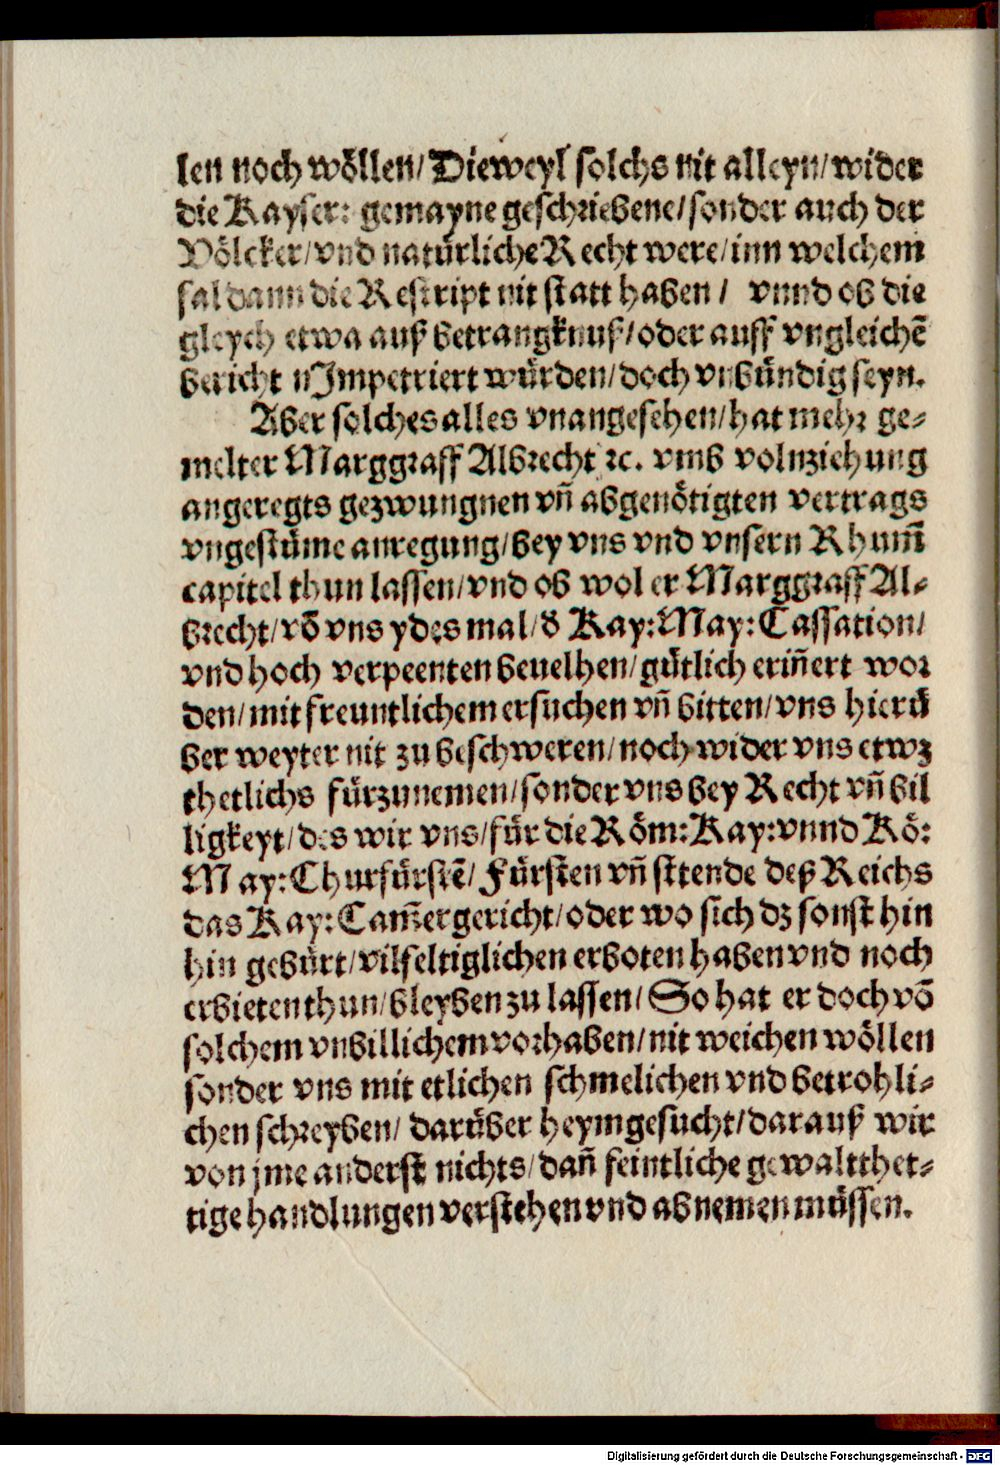 len noch wöllen/ Dieweyl solchs nit alleyn/ wider
die Kayser: gemayne geschriebene/ sonder auch der
Völcker/ vnd natürliche Recht were/ inn welchem
fal dann die Rescript nit statt haben / vnnd ob die
gleych etwa auß betrangknuß/ oder auff vngleichẽ
bericht Impetriert würden/ doch vnbündig seyn.
Aber solches alles vnangesehen/ hat mehr ge-
melter Marggraff Albrecht ꝛc. vmb volnziehung
angeregts gezwungnen vñ abgenötigten vertrags
vngestüme anregung/ bey vns vnd vnsern Rhumm̃
capitel thun lassen/ vnd ob wol er Marggraff Al-
brecht/ võ vns ydes mal/ d̕ Kay: May: Cassation/
vnd hoch verpeenten beuelhen/ gütlich eriñert wor
den/ mit freuntlichem ersuchen vñ bitten/ vns hierü
ber weyter nit zu beschweren/ noch wider vns etwz
thetlichs fürzunemen/ sonder vns bey Recht vñ bil
ligkeyt/ des wir vns/ für die Röm: Kay: vnnd Kö:
May: Churfürstẽ/ Fürsten vñ sttende deß Reichs
das Kay: Cam̃ergericht/ oder wo sich dz sonst hin
hin gebürt/ vilfeltiglichen erboten haben vnd noch
erbieten thun/ bleyben zu lassen/ So hat er doch võ
solchem vnbillichem vorhaben/ nit weichen wöllen
sonder vns mit etlichen schmelichen vnd betrohli-
chen schreyben/ darüber heymgesucht/ darauß wir
von jme anderst nichts/ dañ feintliche gewaltthet-
tige handlungen verstehen vnd abnemen müssen.
Digitalisierung gefördert durch die Deutsche Forschungsgemeinschaft - DFG